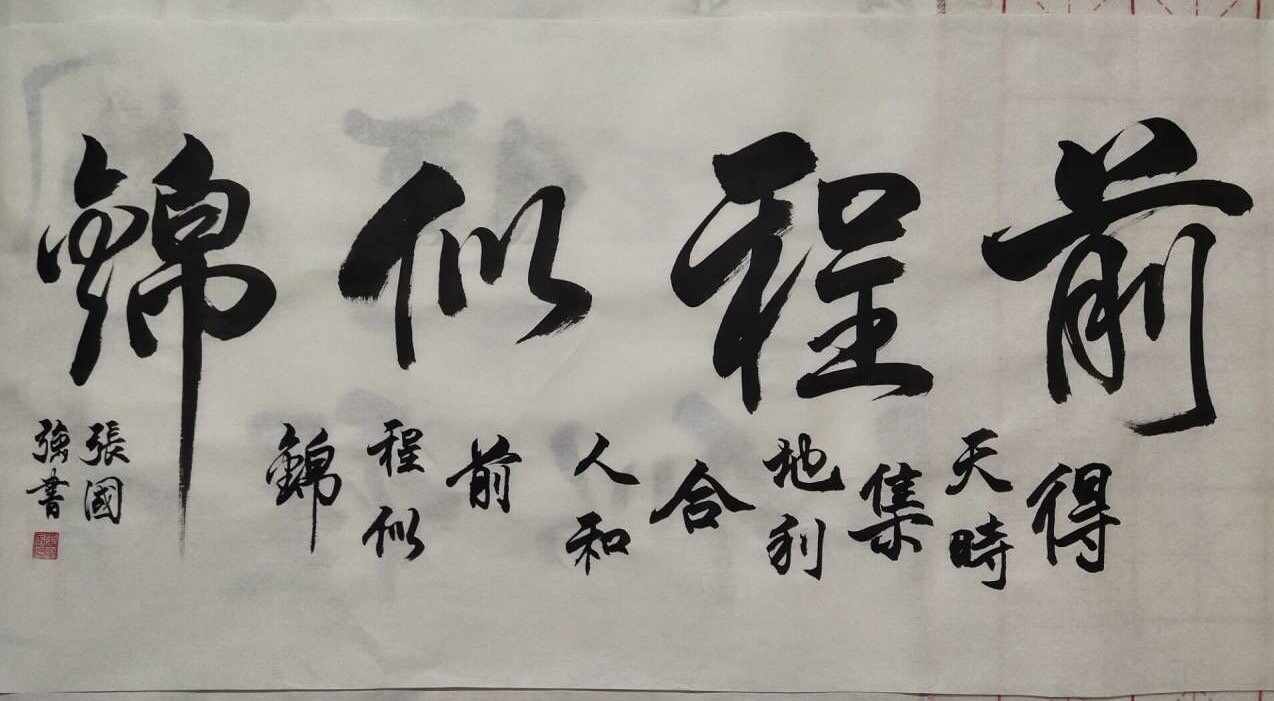 前程似錦
得天時集地利合人和前程似錦
張國
強書